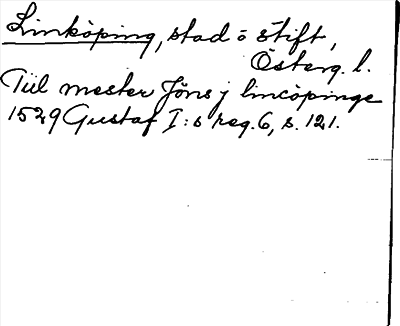 Linköping, stad o stift,
Österg. l.
Till mester Jöns j lincöpinge
1529 Gustaf I:s reg. 6, s. 121.